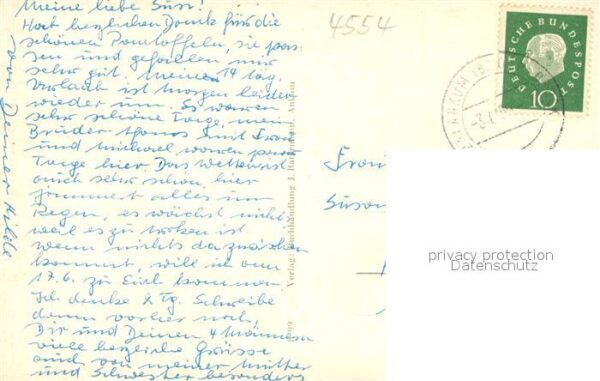 Meine liebe Susi!
Hab herzlichen Dank für die
schönen Pantoffeln, sie pas-
sen und gefallen mir
sehr gut. Meine 14 täg.
Urlaub ist morgen leider
wieder um. Es waren
sehr schöne Tage, mein
Bruder Hans mit Frau
und Michael waren paar
Tage hier. Das Wetter ist
auch sehr schön, hier
jammert alles um
Regen, es wächst nichts
weil es zu trocken ist.
wenn nichts dazwischen
kommt, will ich am
17.6. zu Euch kommen
Ich denke 8 Tg. Schreibe
dann vorher noch,
Dir und Deinen 4 Männern
viele herzliche Grüsse
auch von meiner Mutter
und Schwester besonders
von Deiner Hilde
4554
DEUTSCHE BUNDESPOST
10
Verlag: Buchhandlung J.
Frau
Susan
privacy protection
Datenschutz